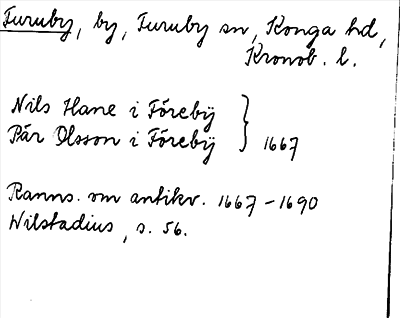 Furuby, by, Furuby sn, Konga hd,
Kronob. l.
Nils Hane i Förebÿ
Pär Olsson i Förebÿ } 1667
Ranns. om antikv. 1667-1690
Wilstadius, s. 56.